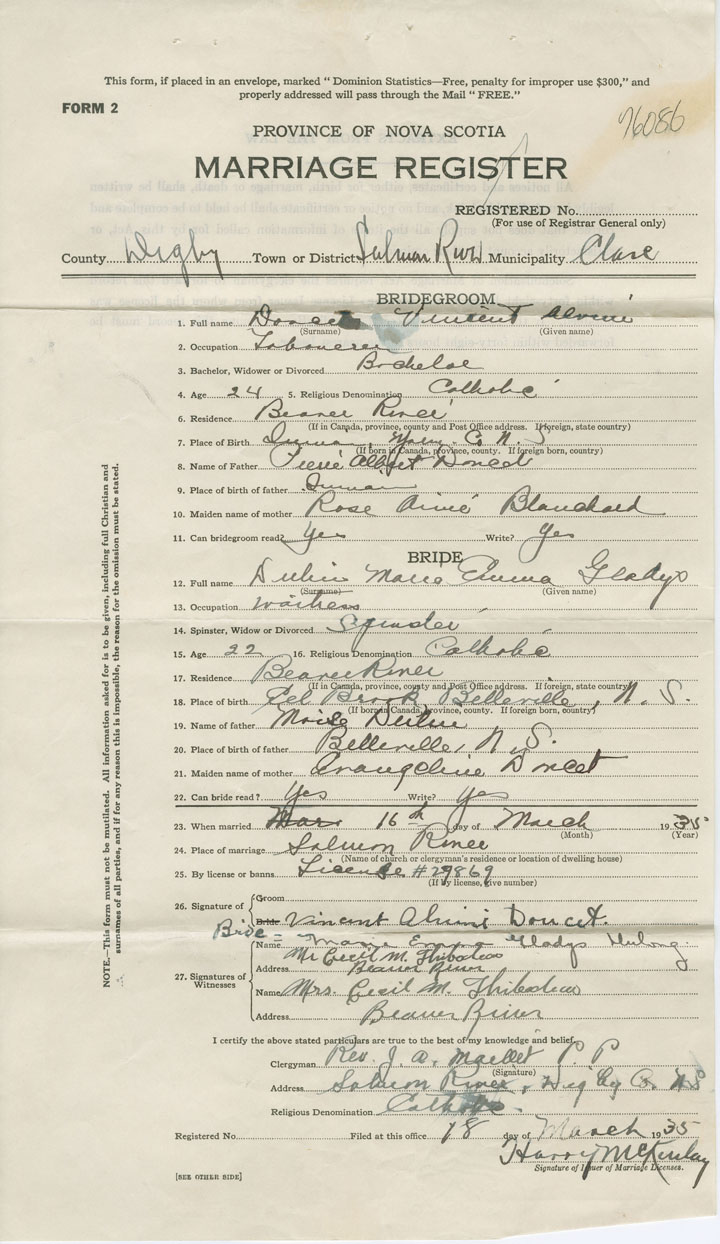 This form, if placed in an envelope, marked “ Dominion Statistics—Free, penalty for improper use $300,” and
properly addressed will pass through the Mail “ FREE.”
FORM 2
76086
PROVINCE OF NOVA SCOTIA
MARRIAGE REGISTER
REGISTERED No.
(For use of Registrar General only)
County Digby Town or District Salmon River Municipality Clare
BRIDEGROOM
1. Full name Doucet Vincent
(Surname) (Given name)
2. Occupation Labourer
3. Bachelor, Widower or Divorced Bachelor
4. Age 24 5. Religious Denomination Catholic
6. Residence Beaver River
(If in Canada, province, county and Post Office address. If foreign, state country)
7. Place of Birth Yar. Co. N. S.
(If born in Canada, province, county. If foreign born, country)
8. Name of Father Pierre Albert Doucet
9. Place of birth of father
10. Maiden name of mother Rose Aimé Blanchard
11. Can bridegroom read? Yes Write? Yes
BRIDE
12. Full name Marie Emma Gladys
(Surname) (Given name)
13. Occupation Waitress
14. Spinster, Widow or Divorced Spinster
15. Age 22 16. Religious Denomination Catholic
17. Residence Beaver River
(If in Canada, province, county and Post Office address. If foreign, state country)
18. Place of birth Eel Brook Belleville, N. S.
(If born in Canada, province, county. If foreign born, country)
19. Name of father
20. Place of birth of father Belleville, N. S.
21. Maiden name of mother Evangeline Doucet
22. Can bride read? Yes Write? Yes
23. When married Mar 16 th day of March 1935
(Month) (Year)
24. Place of marriage Salmon River
(Name of church or clergyman's residence or location of dwelling house)
25. By license or banns License #29869
(If by license, give number)
26. Signature of
Groom
Bride Vincent Doucet.
Bride = Marie Emma Gladys
27. Signatures of Witnesses
Name Mr Cecil M. Thibodeau
Address Beaver River
Name Mrs. Cecil M. Thibodeau
Address Beaver River
I certify the above stated particulars are true to the best of my knowledge and belief,
Clergyman Rev. J. A. Maillet P. P.
(Signature)
Address Salmon River, Digby Co. N S
Religious Denomination Catholic
Registered No. Filed at this office 18 day of March 1935
Harry McKinlay
Signature of Issuer of Marriage Licenses.
[SEE OTHER SIDE]
NOTE.—This form must not be mutilated. All information asked for is to be given, including full Christian and
surnames of all parties, and if for any reason this is impossible, the reason for the omission must be stated.